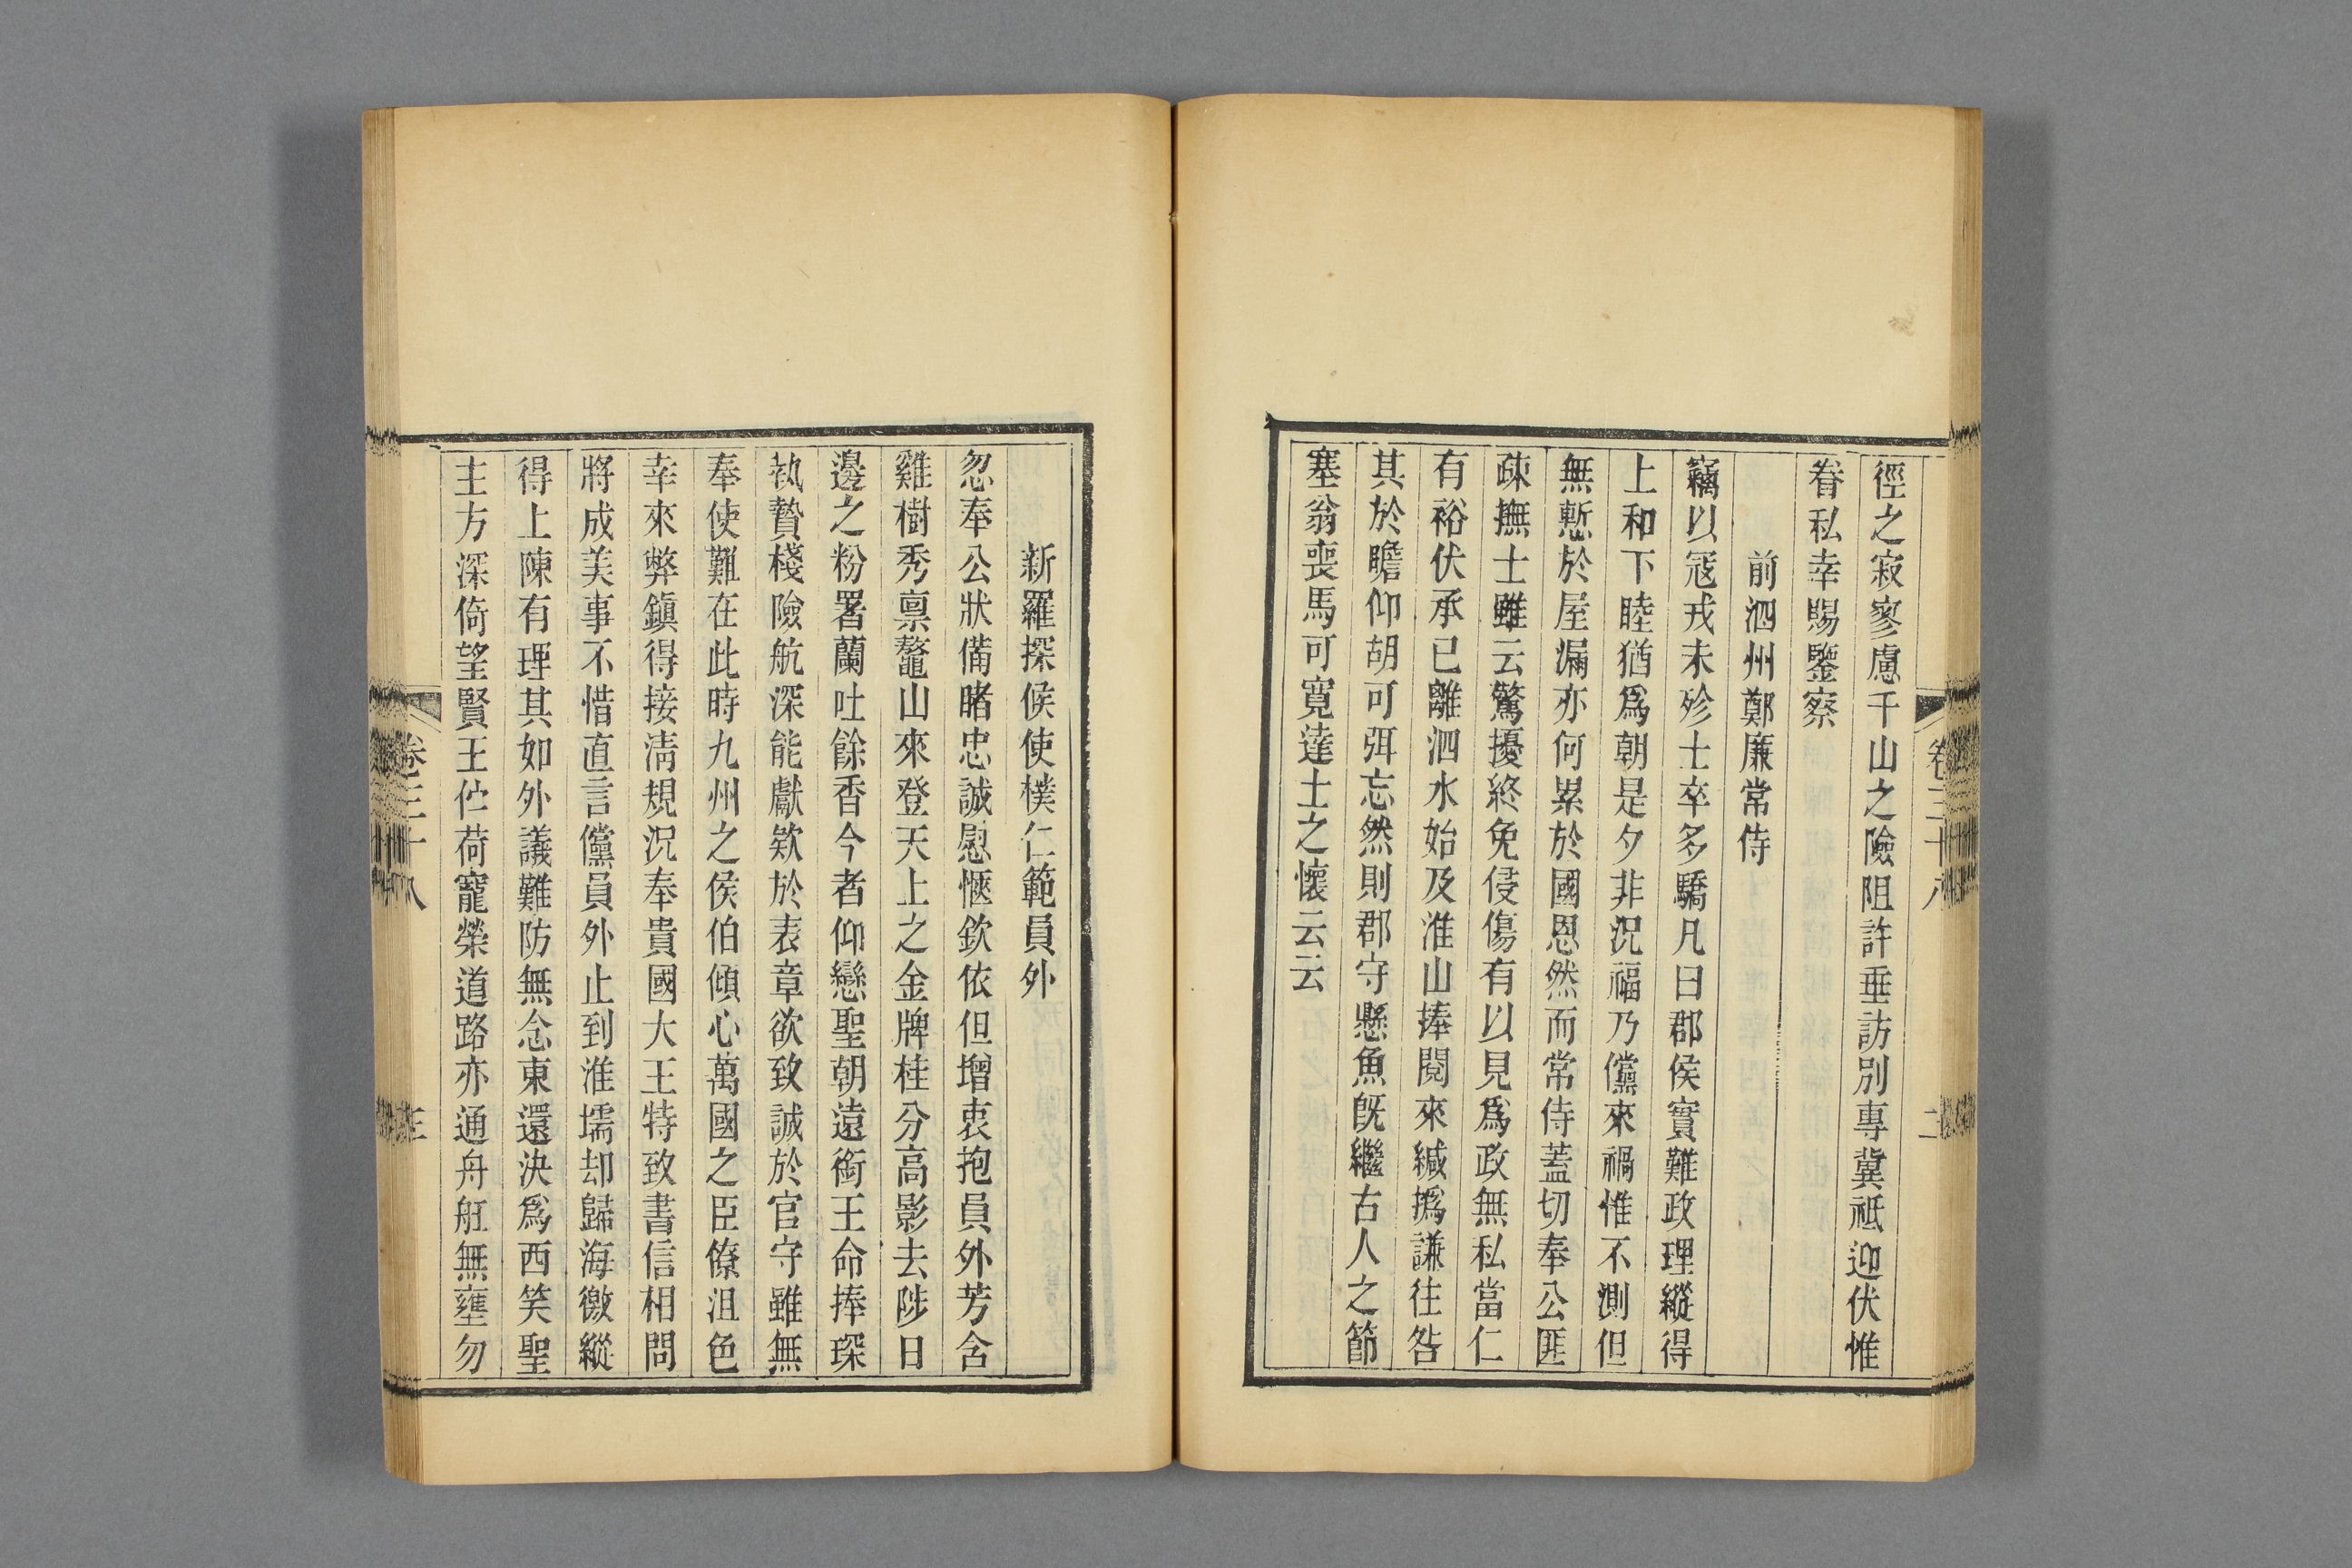 徑之寂寥慮千山之險阻許垂訪別專冀祗迎伏惟
眷私幸賜鑒察
前泗州鄭廉常侍
竊以寇戎未殄士卒多驕凡曰郡侯實難政理縱得
上和下睦猶爲朝是夕非況福乃儻來禍惟不測但
無慙於屋漏亦何累於國恩然而常侍蓋切奉公匪
疎撫士雖云驚擾終免侵傷有以見爲政無私當仁
有裕伏承已離泗水始及淮山捧閱來緘撝謙往咎
其於瞻仰胡可弭忘然則郡守懸魚旣繼古人之節
塞翁喪馬可寛達士之懷云云
新羅探候使樸仁範員外
忽奉公狀備睹忠誠慰愜欽依但增衷抱員外芳含
雞樹秀禀鼇山來登天上之金牌桂分高影去陟日
邊之粉署蘭吐餘香今者仰戀聖朝遠銜王命捧琛
執贄棧險航深能獻欵於表章欲致誠於官守雖無
奉使難在此時九州之侯伯傾心萬國之臣僚沮色
幸來弊鎭得接淸規況奉貴國大王特致書信相問
將成美事不惜直言儻員外止到淮壖却歸海徼縱
得上陳有理其如外議難防無念東還決爲西笑聖
主方深倚望賢王伫荷寵榮道路亦通舟舡無壅勿
卷三十八
三